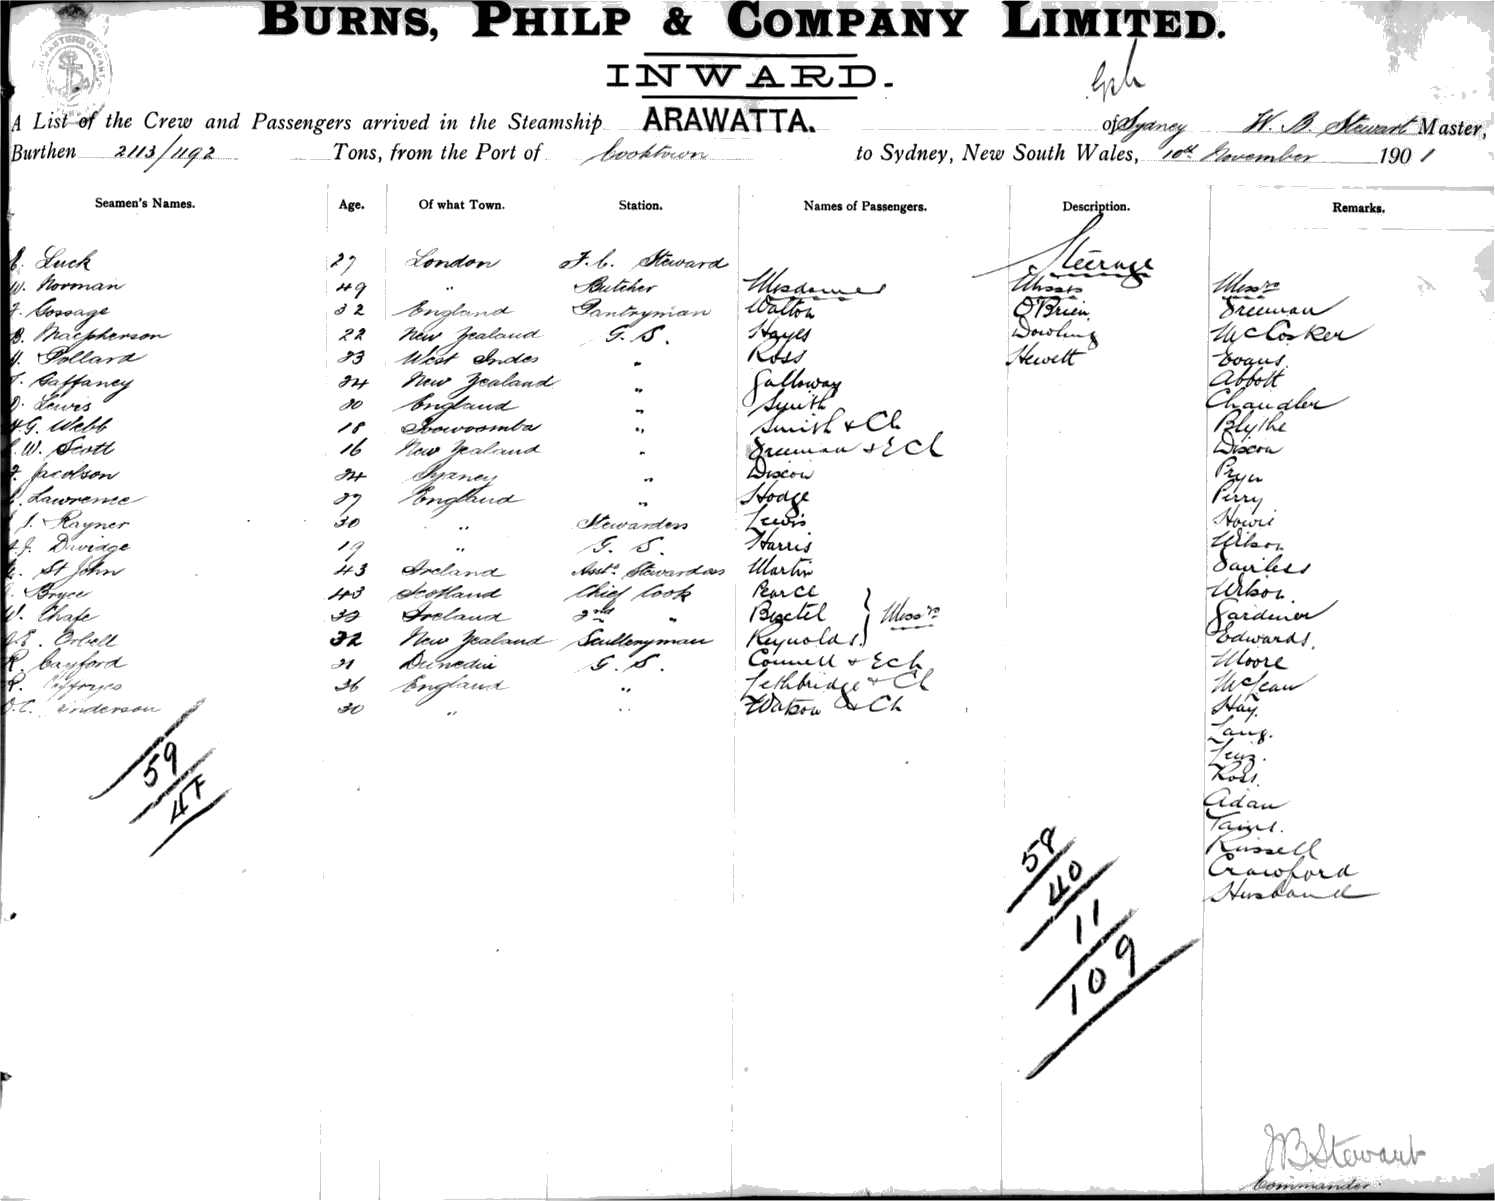 BURNS, PHILP & COMPANY LIMITED.
INWARD.
A List of the Crew and Passengers arrived in the Steamship ARAWATTA. of Sydney W. B. Stewart Master,
Burthen 2113/1192 Tons, from the Port of Cooktown to Sydney, New South Wales, 10th November 1901
Seamen's Names. Age. Of what Town. Station. Names of Passengers. Description. Remarks.
Steerage
Luck 27 London F. C. Steward
W. Norman 49 " Butcher Mesdames Misses Messrs
Gossage 32 England Pantryman Walton O'Brien Freeman
B. Macpherson 22 New Zealand G. S. Hayes Dowling McCosker
Pollard 23 West Indes " Ross Hewett Evans
Gaffaney 24 New Zealand " Galloway Abbott
Lewis 20 England " Smith Chandler
G. Webb 18 Toowoomba " Smith & Ch Blythe
W. Scott 16 New Zealand " Freeman & 2 Ch Dixon
Jacobson 24 Sydney " Dixon Pryer
Lawrence 27 England " Hodge Perry
Rayner 30 " Stewardess Lewis Howie
J. Davidge 19 " G. S. Harris Wilson
St John 43 Ireland Asst. Stewardess Martin
Bryce 43 Scotland Chief Cook Pearce Wilson
W. Chafe Ireland 2nd " Bechtel Messrs Gardiner
Orbell 32 New Zealand Sculleryman Reynolds Edwards
R. Cayford 21 Dunedin G. S. Connell & 2 Ch Moore
R. 36 England " Lethbridge & Ch McLean
Anderson 30 " " Watson & Ch Hay
Lang.
Ross
Adan
Russell
Crawford
Husband
59
47
58
40
11
109
W B Stewart
Commander